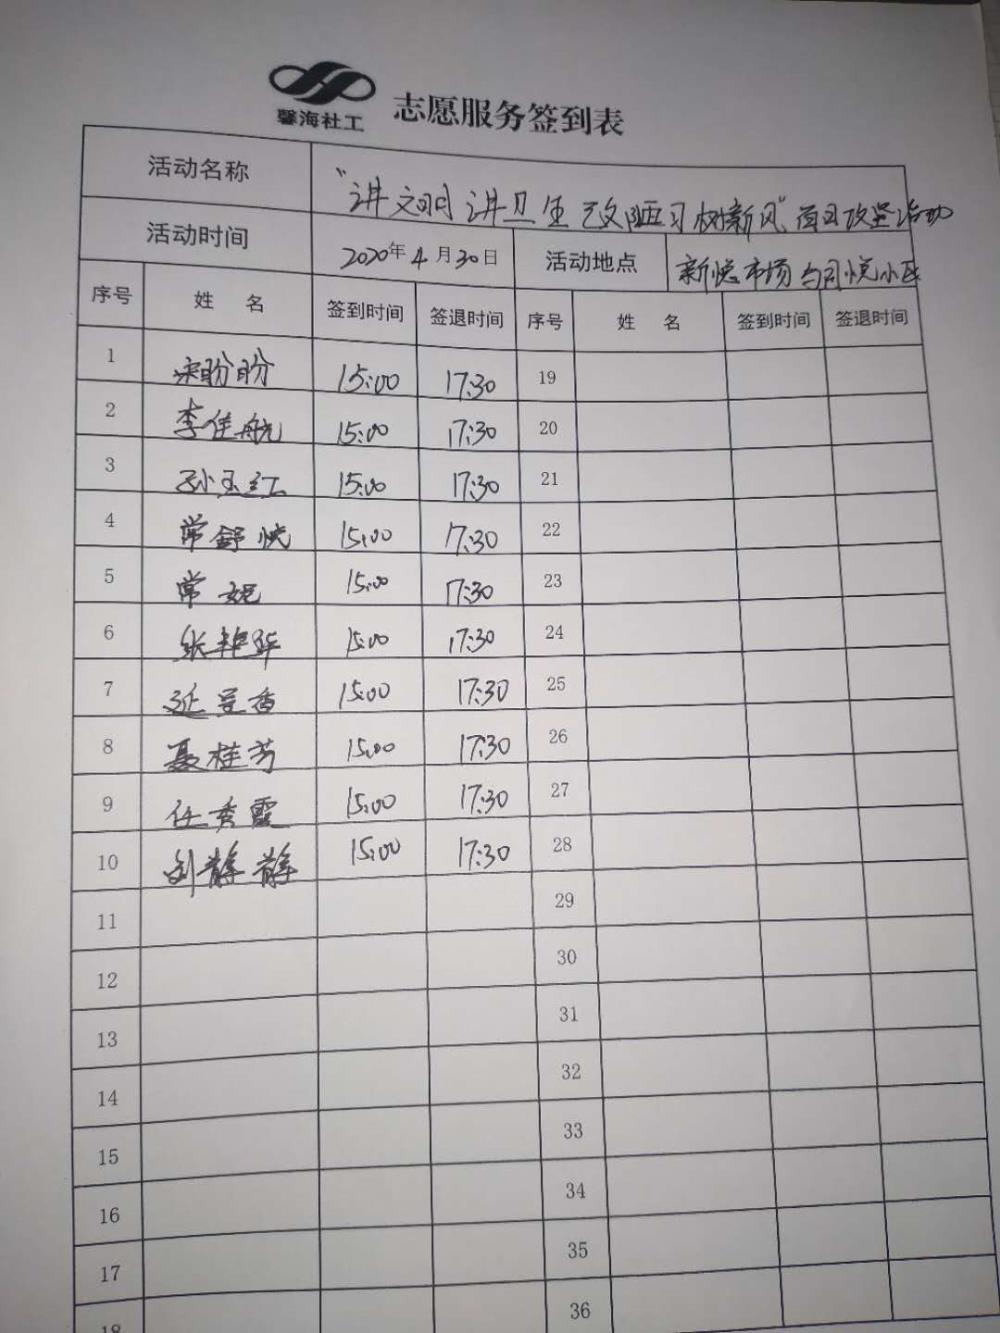 馨海社工 志愿服务签到表
活动名称 "讲文明 讲卫生 改陋习 树新风"百日攻坚活动
活动时间 2020年4月30日 活动地点 新悦市场 与同悦小区
序号 姓 名 签到时间 签退时间 序号 姓 名 签到时间 签退时间
1 宋盼盼 15:00 17:30 19
2 李佳航 15:00 17:30 20
3 孙玉红 15:00 17:30 21
4 常舒悦 15:00 17:30 22
5 常妮 15:00 17:30 23
6 张艳华 15:00 17:30 24
7 延豆香 15:00 17:30 25
8 聂桂芳 15:00 17:30 26
9 任秀霞 15:00 17:30 27
10 刘静静 15:00 17:30 28
11 29
12 30
13 31
14 32
15 33
16 34
17 35
18 36